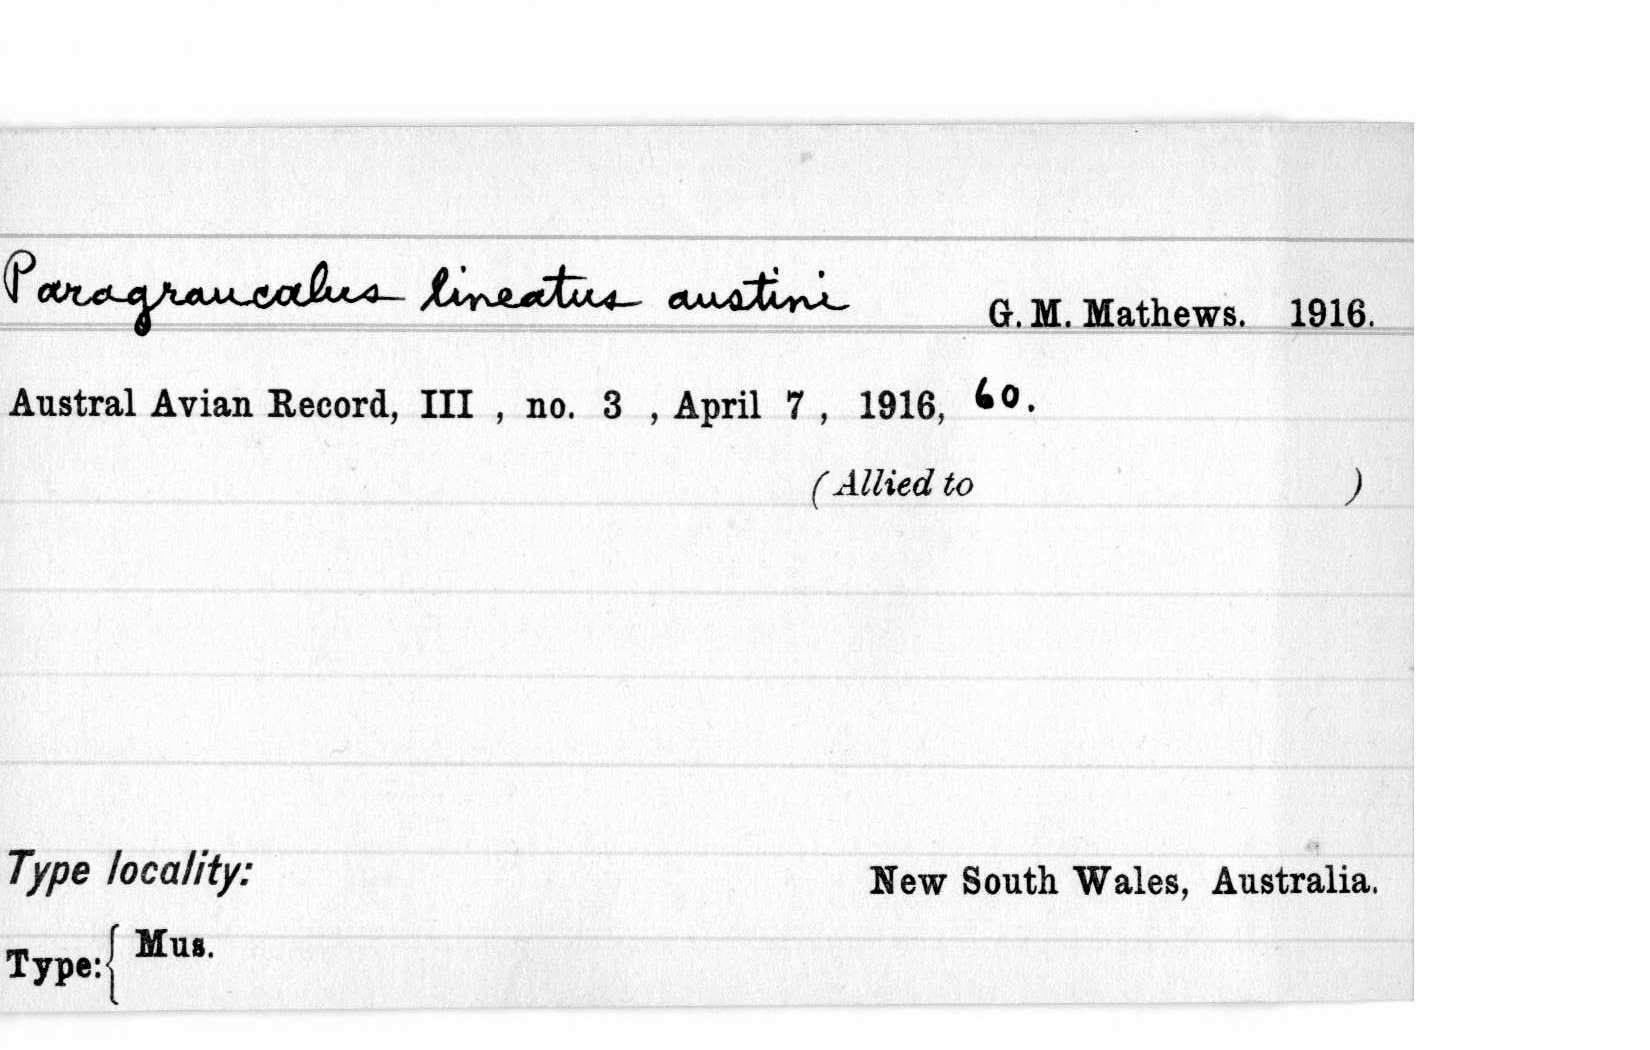 Paragraucalus lineatus austini G. M. Mathews. 1916.
Austral Avian Record, III , no. 3 , April 7 , 1916, 60.
(Allied to )
Type locality: New South Wales, Australia.
Type: { Mus.